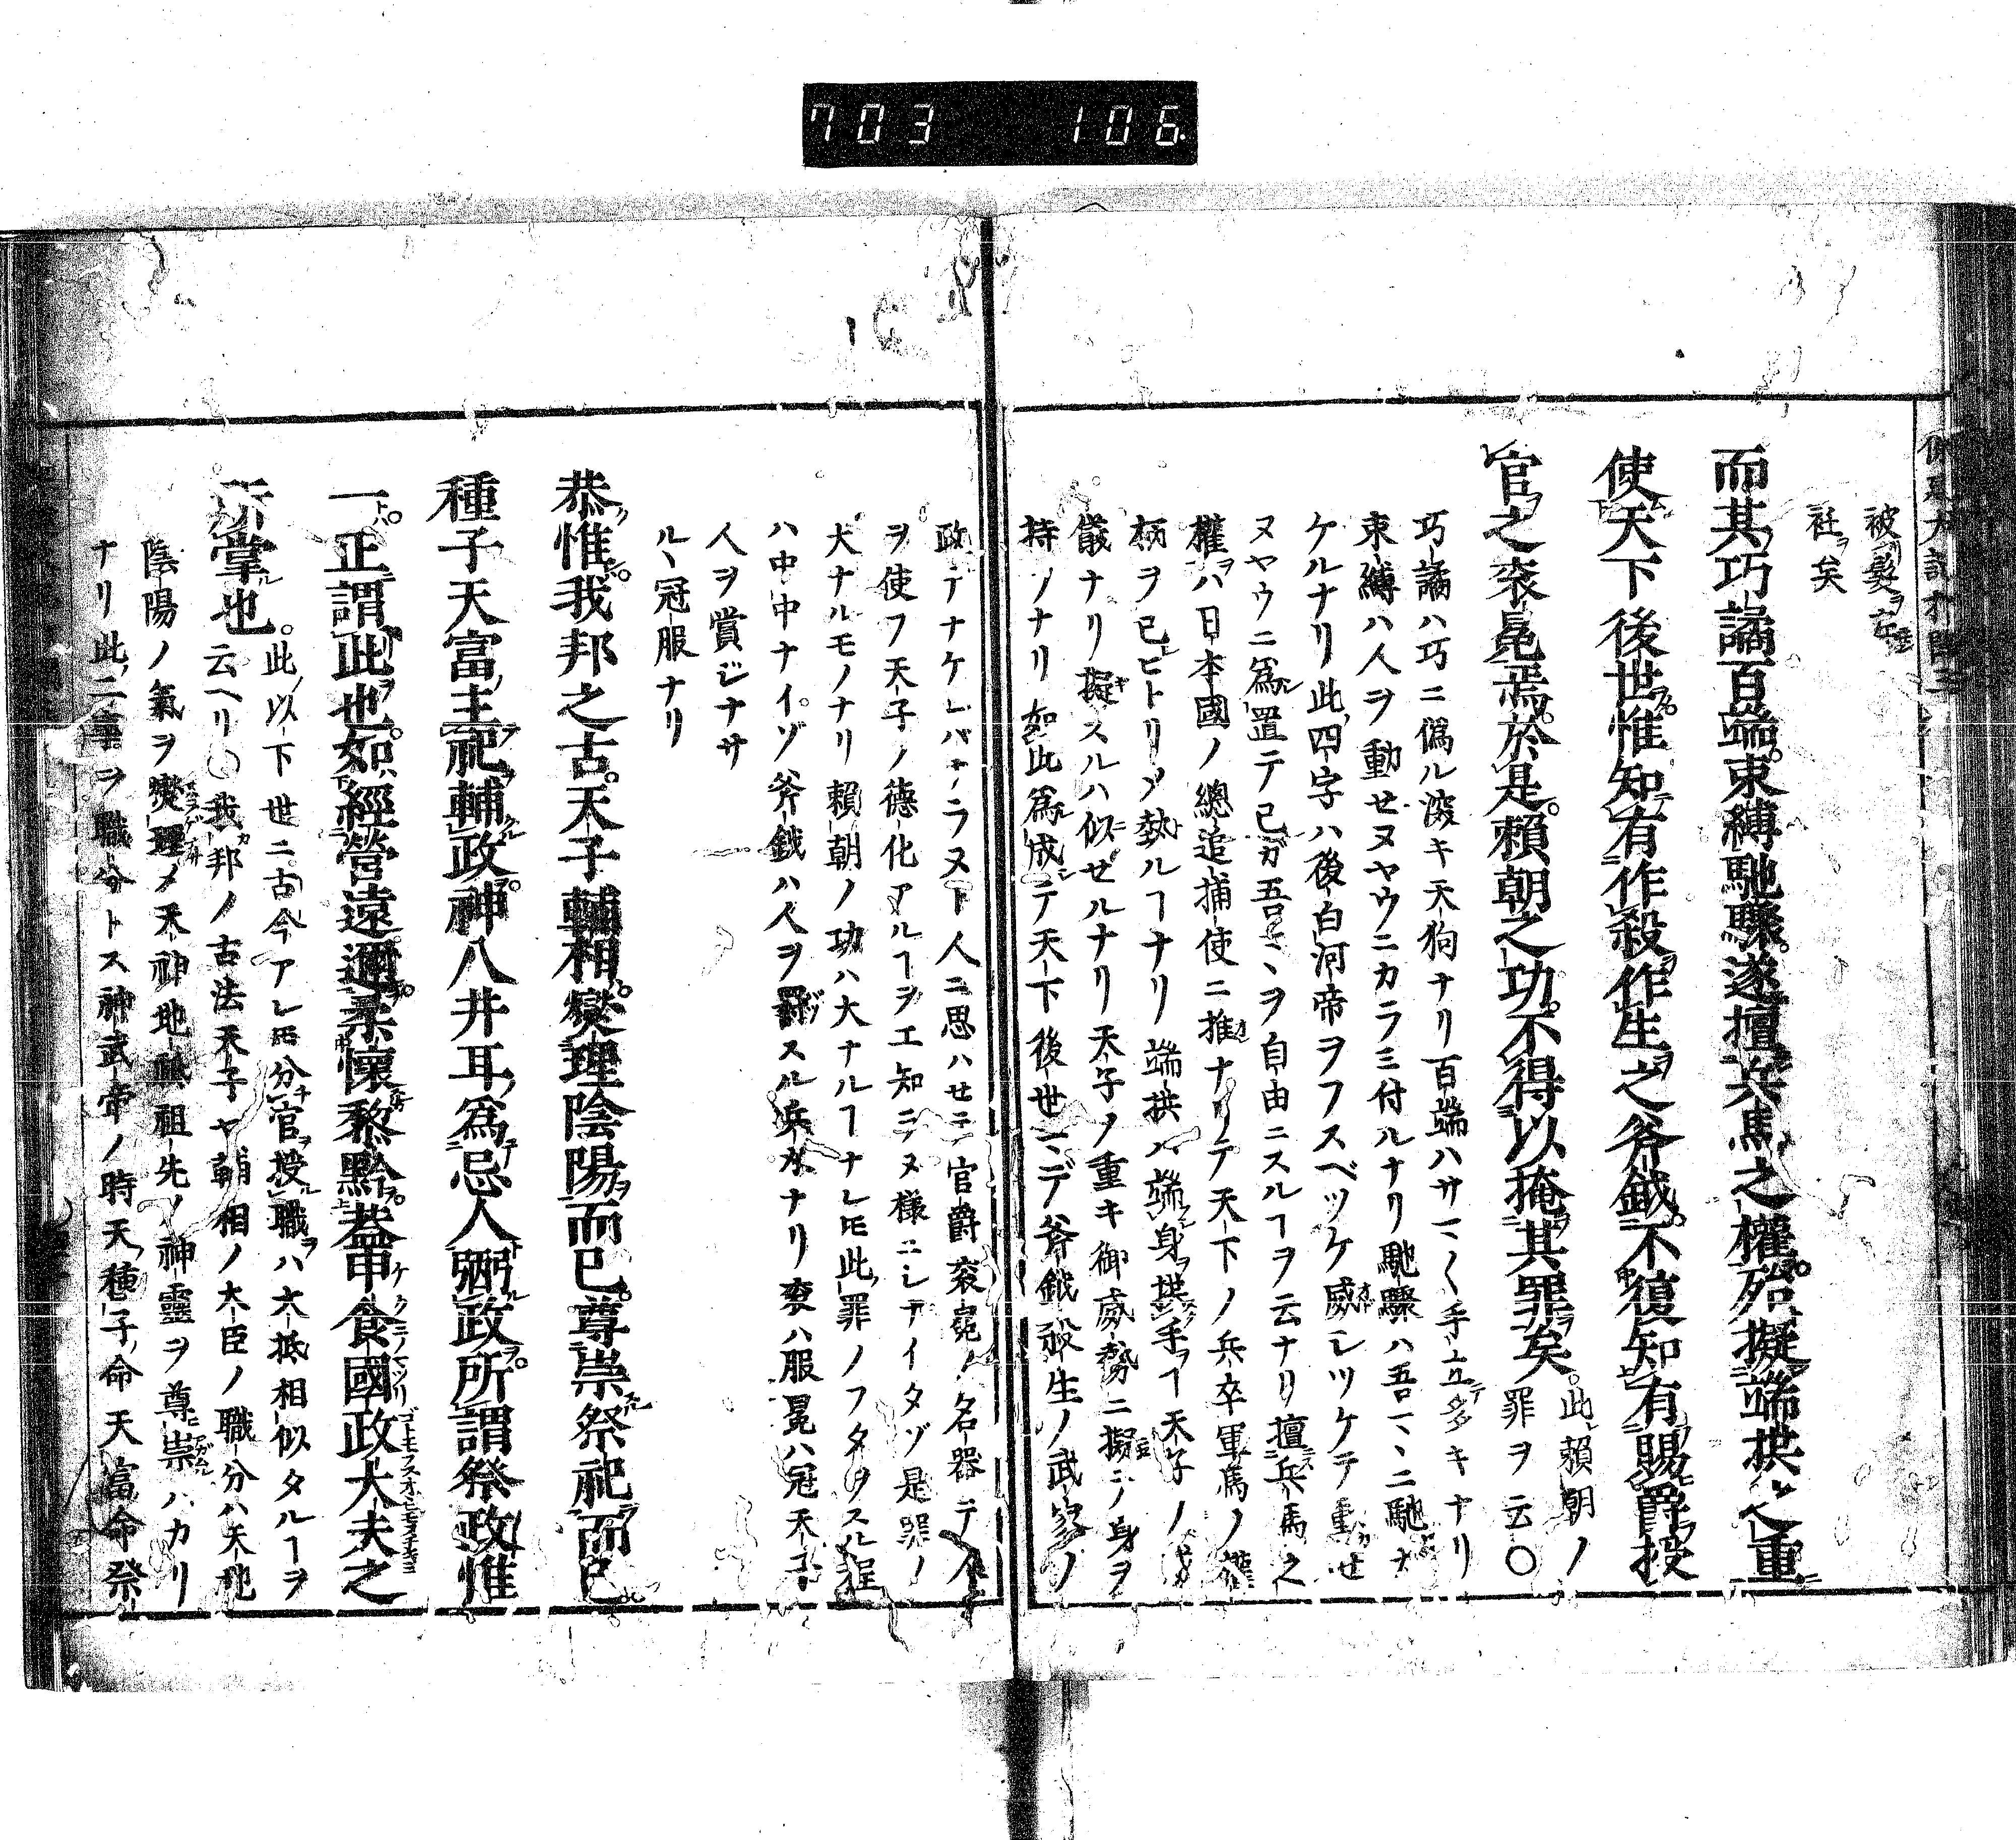 703 106
被髮ヲ
衽ヲ矣
而其巧譎百端束縛馳驟遂擅兵馬之權殆擬端拱之重
使天下後世惟知有作殺作生之斧鉞不復知有賜爵授
官之衮冕焉於是賴朝之功不得以掩其罪矣此賴朝ノ
罪ヲ云○
巧譎ハ巧ニ僞ル深キ天狗ナリ百端ハサマ〱手立多キナリ
束縛ハ人ヲ動セヌヤウニカラミ付ルナリ馳驟ハ吾マヽニ馳ナ
ケルナリ此四字ハ後白河帝ヲフスベツケ威シツケテ重カセ
ヌヤウニ爲置テ己ガ吾マヽヲ自由ニスルヿヲ云ナリ擅兵馬之
權ハ日本國ノ總追捕使ニ推ナリテ天下ノ兵卒軍馬ノ權
柄ヲ己ヒトリノ勢ルヿナリ端拱ハ端身拱手ヿ天子ノ
儀ナリ擬スルハ似セルナリ天子ノ重キ御威勢ニ擬シ身ヲ
持ノナリ如此爲成テ天下後世マデ斧鉞殺生ノ武家ノ
政デナケレバナラヌト人ニ思ハセテ官爵衮冕ノ名器デ人
ヲ使フ天子ノ德化アルヿヲエ知ラヌ樣ニシテイタゾ是罪ノ
大ナルモノナリ賴朝ノ功ハ大ナルヿナレ𪜈此罪ノフタヲスル程
ハ中中ナイゾ斧鉞ハ人ヲ罰スル兵器ナリ衮ハ服冕ハ冠天子
人ヲ賞ジナサ
ルヽ冠服ナリ
恭惟我邦之古天子輔相燮理陰陽而已尊崇祭祀而已
種子天富主祀輔政神八井耳爲忌人弼政所謂祭政惟
一正謂此也如經營遠邇柔懷黎黔葢申食國政大夫之
所掌也此以下世ニ古今アレ𪜈分官授職ハ大抵相似タルヿヲ
云ヘリ○我邦ノ古法天子ヤ輔相ノ大臣ノ職分ハ天地
陰陽ノ氣ヲ燮理メ天神地祇祖先ノ神靈ヲ尊崇ハカリ
ナリ此二事ヲ職分トス神武帝ノ時天種子命天富命祭